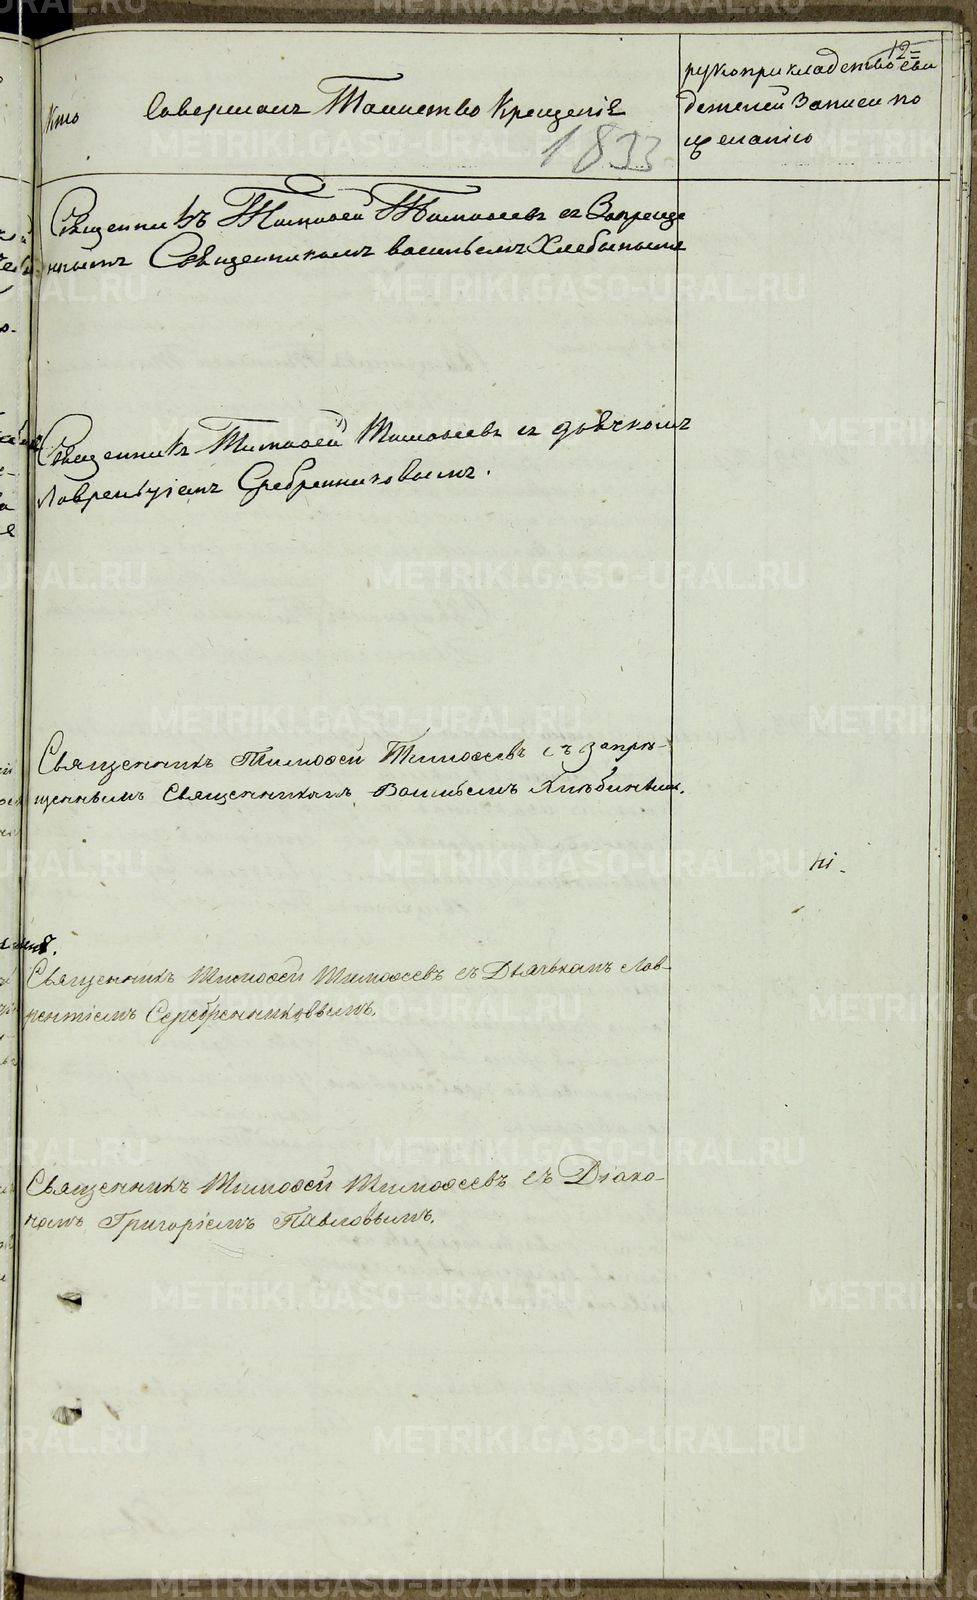 12
Кто совершалъ Таинство Крещенія
рукоприкладство сви
детелей Записи по
желанію
1833
Священникъ Тимофей Тимофеевъ съ Запреще
ннымъ Священникомъ васильемъ Хлебинымъ
Священникъ Тимофей Тимофеевъ съ дьячкомъ
Лаврентіемъ Сребренниковымъ.
Священникъ Тимофей Тимофеевъ съ запре-
щеннымъ Священникомъ Васильемъ Хлѣбинымъ.
Священникъ Тимофей Тимофеевъ съ Дьячькомъ Лав-
рентіемъ Серебренниковымъ.
Священникъ Тимофей Тимофеевъ съ Діако-
номъ Григоріемъ Павловымъ.
METRIKI.GASO-URAL.RU